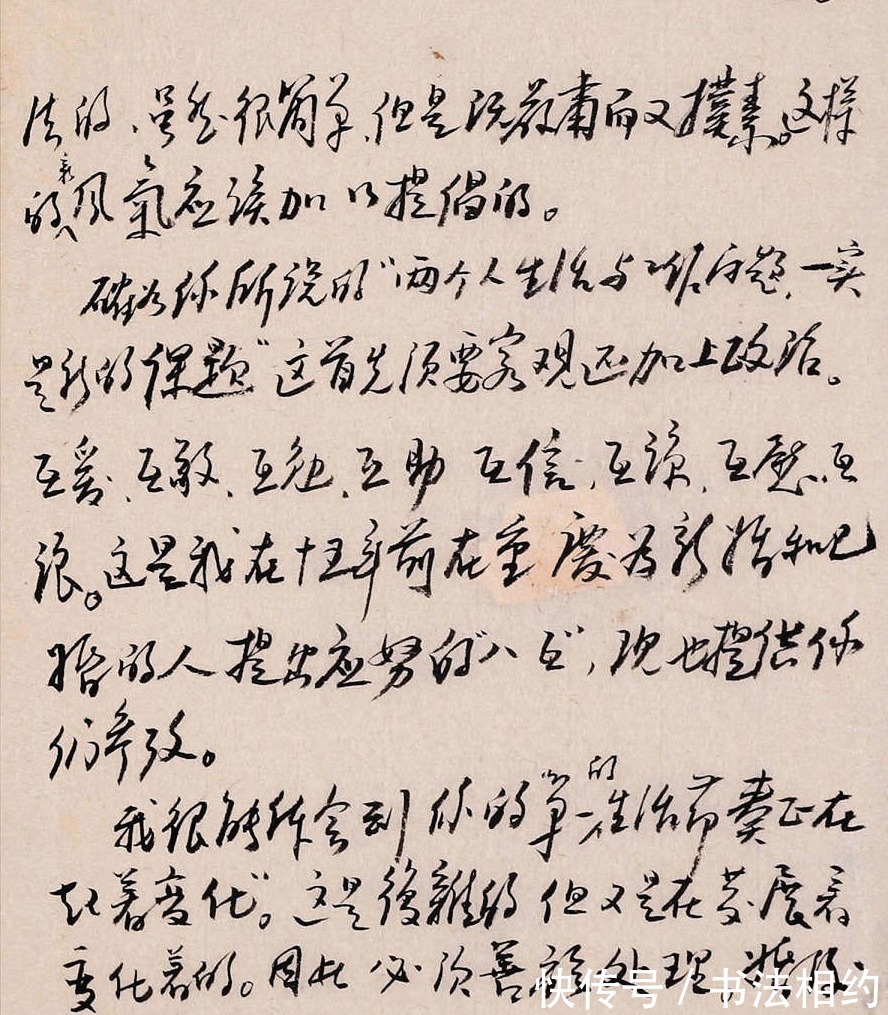 法的、虽然很简单,但是既严肃而又朴素。这样
的家风气应该加以提倡的。
确如你所说的"两个人生活与工作问题,一实
是新的课题"这首先须要客观还加上政治。
互爱、互敬、互勉、互助 互信、互谅、互慰、互
让。这是我在十五年前在重慶为新婚和已
婚的人提出应努的"八互",现也提供你
们参攷。
我很能体会到你的"单一的生活节奏正在
起着变化"。这是復雜的但又是在发展着
变化着的。因此必须善于处理。婚后
快传号 / 书法相约